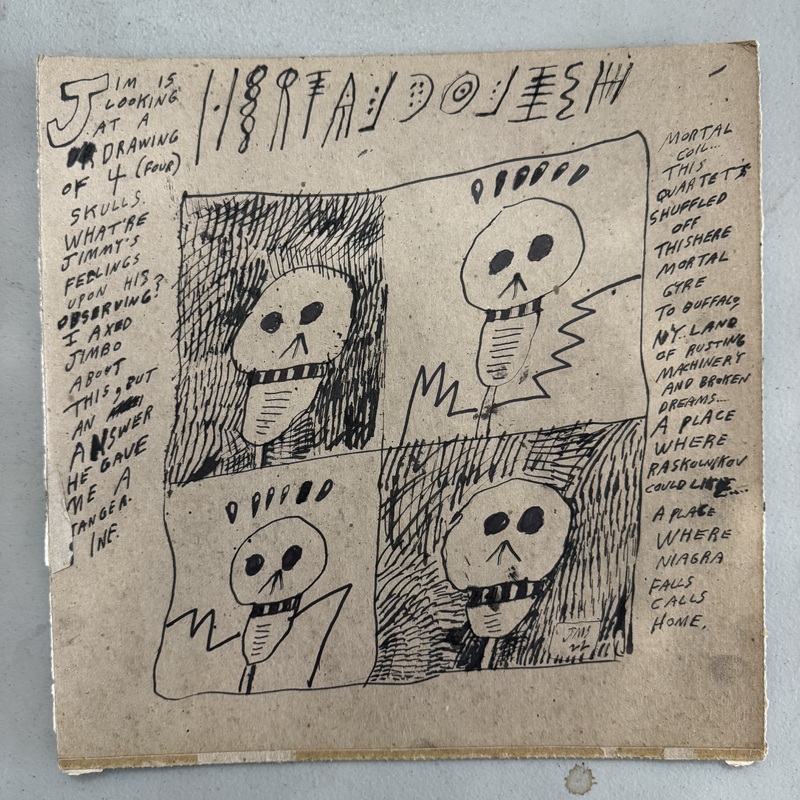 JIM IS
LOOKING
AT A
DRAWING
OF 4 (FOUR)
SKULLS.
WHAT'RE
JIMMY'S
FEELINGS
UPON HIS
OBSERVING?
I AXED
JIMBO
ABOUT
THIS, BUT
AN
ANSWER
HE GAVE
ME A
TANGER.
INE.
MORTAL
COIL...
THIS
QUARTET'S
SHUFFLED
OFF
THISHERE
MORTAL
GYRE
TO BUFFALO,
NY. LAND
OF RUSTING
MACHINERY
AND BROKEN
DREAMS...
A PLACE
WHERE
RASKOLNIKOV
COULD LIVE....
A PLACE
WHERE
NIAGRA
FALLS
CALLS
HOME.
JIM
22